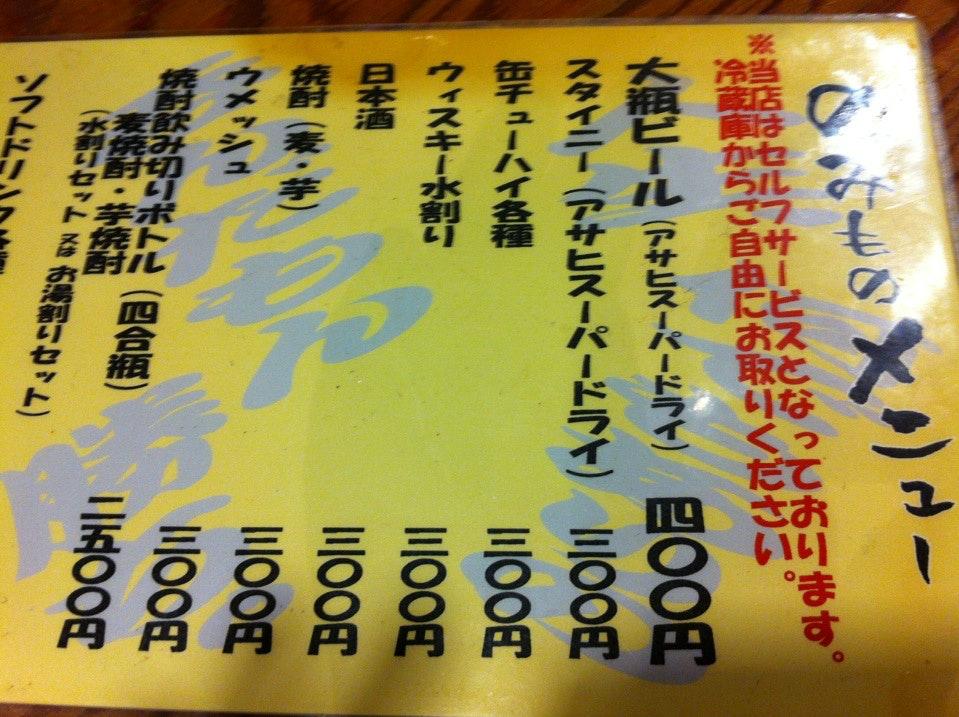 のみものメニュー
※当店はセルフサービスとなっております。
冷蔵庫からご自由にお取りください。
大瓶ビール（アサヒスーパードライ） 四〇〇円
スタイニー（アサヒスーパードライ） 三〇〇円
缶チューハイ各種 三〇〇円
ウィスキー水割り 三〇〇円
日本酒 三〇〇円
焼酎（麦・芋） 三〇〇円
ウメッシュ 三〇〇円
焼酎飲み切りボトル（四合瓶） 二五〇〇円
麦焼酎・芋焼酎
（水割りセット又はお湯割りセット）
ソフトドリンク各種